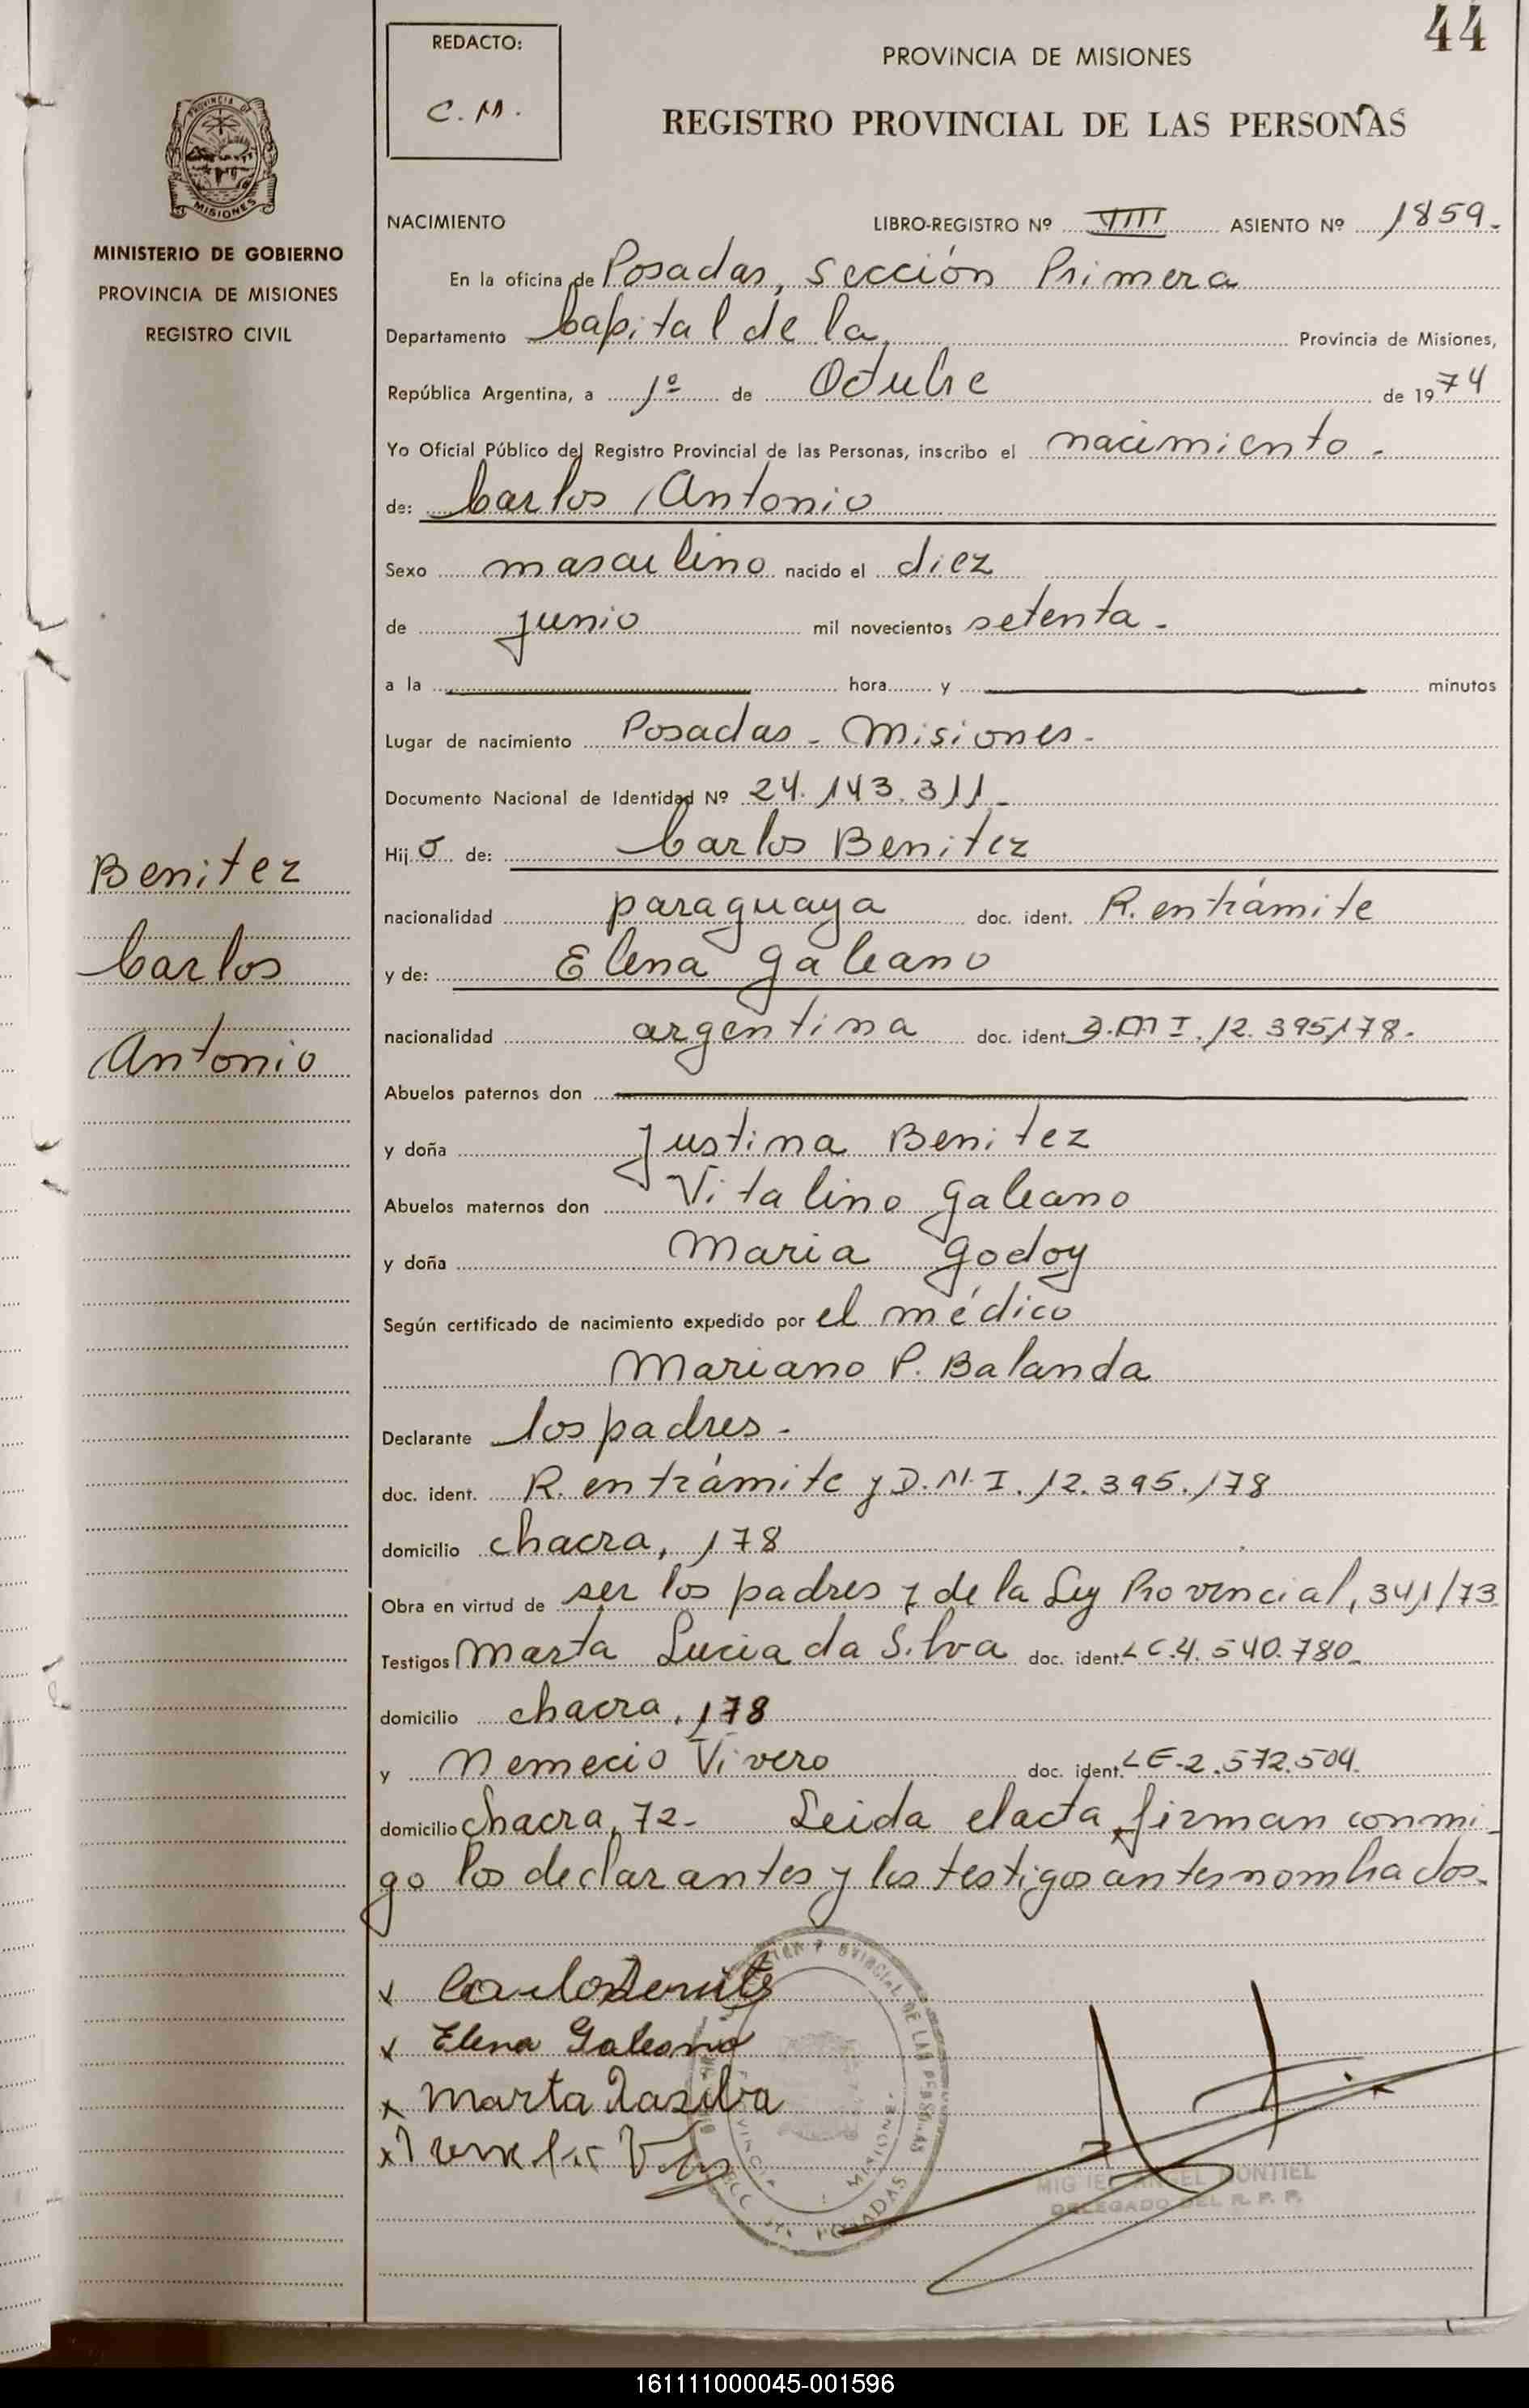 44
REDACTO:
C. M.
PROVINCIA DE MISIONES
REGISTRO PROVINCIAL DE LAS PERSONAS
PROVINCIA DE
MISIONES
MINISTERIO DE GOBIERNO
PROVINCIA DE MISIONES
REGISTRO CIVIL
NACIMIENTO LIBRO-REGISTRO Nº VIII ASIENTO Nº 1859-
En la oficina de Posadas, sección Primera
Departamento Capital de la, Provincia de Misiones,
República Argentina, a 1º de Octubre de 1974
Yo Oficial Público del Registro Provincial de las Personas, inscribo el nacimiento.-
de: Carlos Antonio
Sexo masculino nacido el diez
de junio mil novecientos setenta-
a la hora y minutos
Lugar de nacimiento Posadas - Misiones-
Documento Nacional de Identidad Nº 24.143.311-
Hijo de: Carlos Benitez
nacionalidad paraguaya doc. ident. R. en trámite
y de: Elena Galeano
nacionalidad argentina doc. ident. D.N I. 12.395,178-
Abuelos paternos don
y doña Justina Benitez
Abuelos maternos don Vitalino Galeano
y doña Maria Godoy
Según certificado de nacimiento expedido por el médico
Mariano P. Balanda
Declarante los padres-
doc. ident. R. en trámite y D.N.I. 12.395.178
domicilio chacra, 178
Obra en virtud de ser los padres y de la Ley Provincial, 341/73
Testigos Marta Lucia da Silva doc. ident L C.4.540.780-
domicilio chacra, 178
y Nemecio Vivero doc. ident. L E-2.572.504.
domicilio Chacra, 72- Leida el acta, firman conmi-
go los declarantes y los testigos antes nombrados.
Benitez
Carlos
Antonio
x Carlos Benite
x Elena Galeano
x Marta Dasilva
x
MIGUEL ANGEL MONTIEL
DELEGADO DEL R. P. P.
161111000045-001596